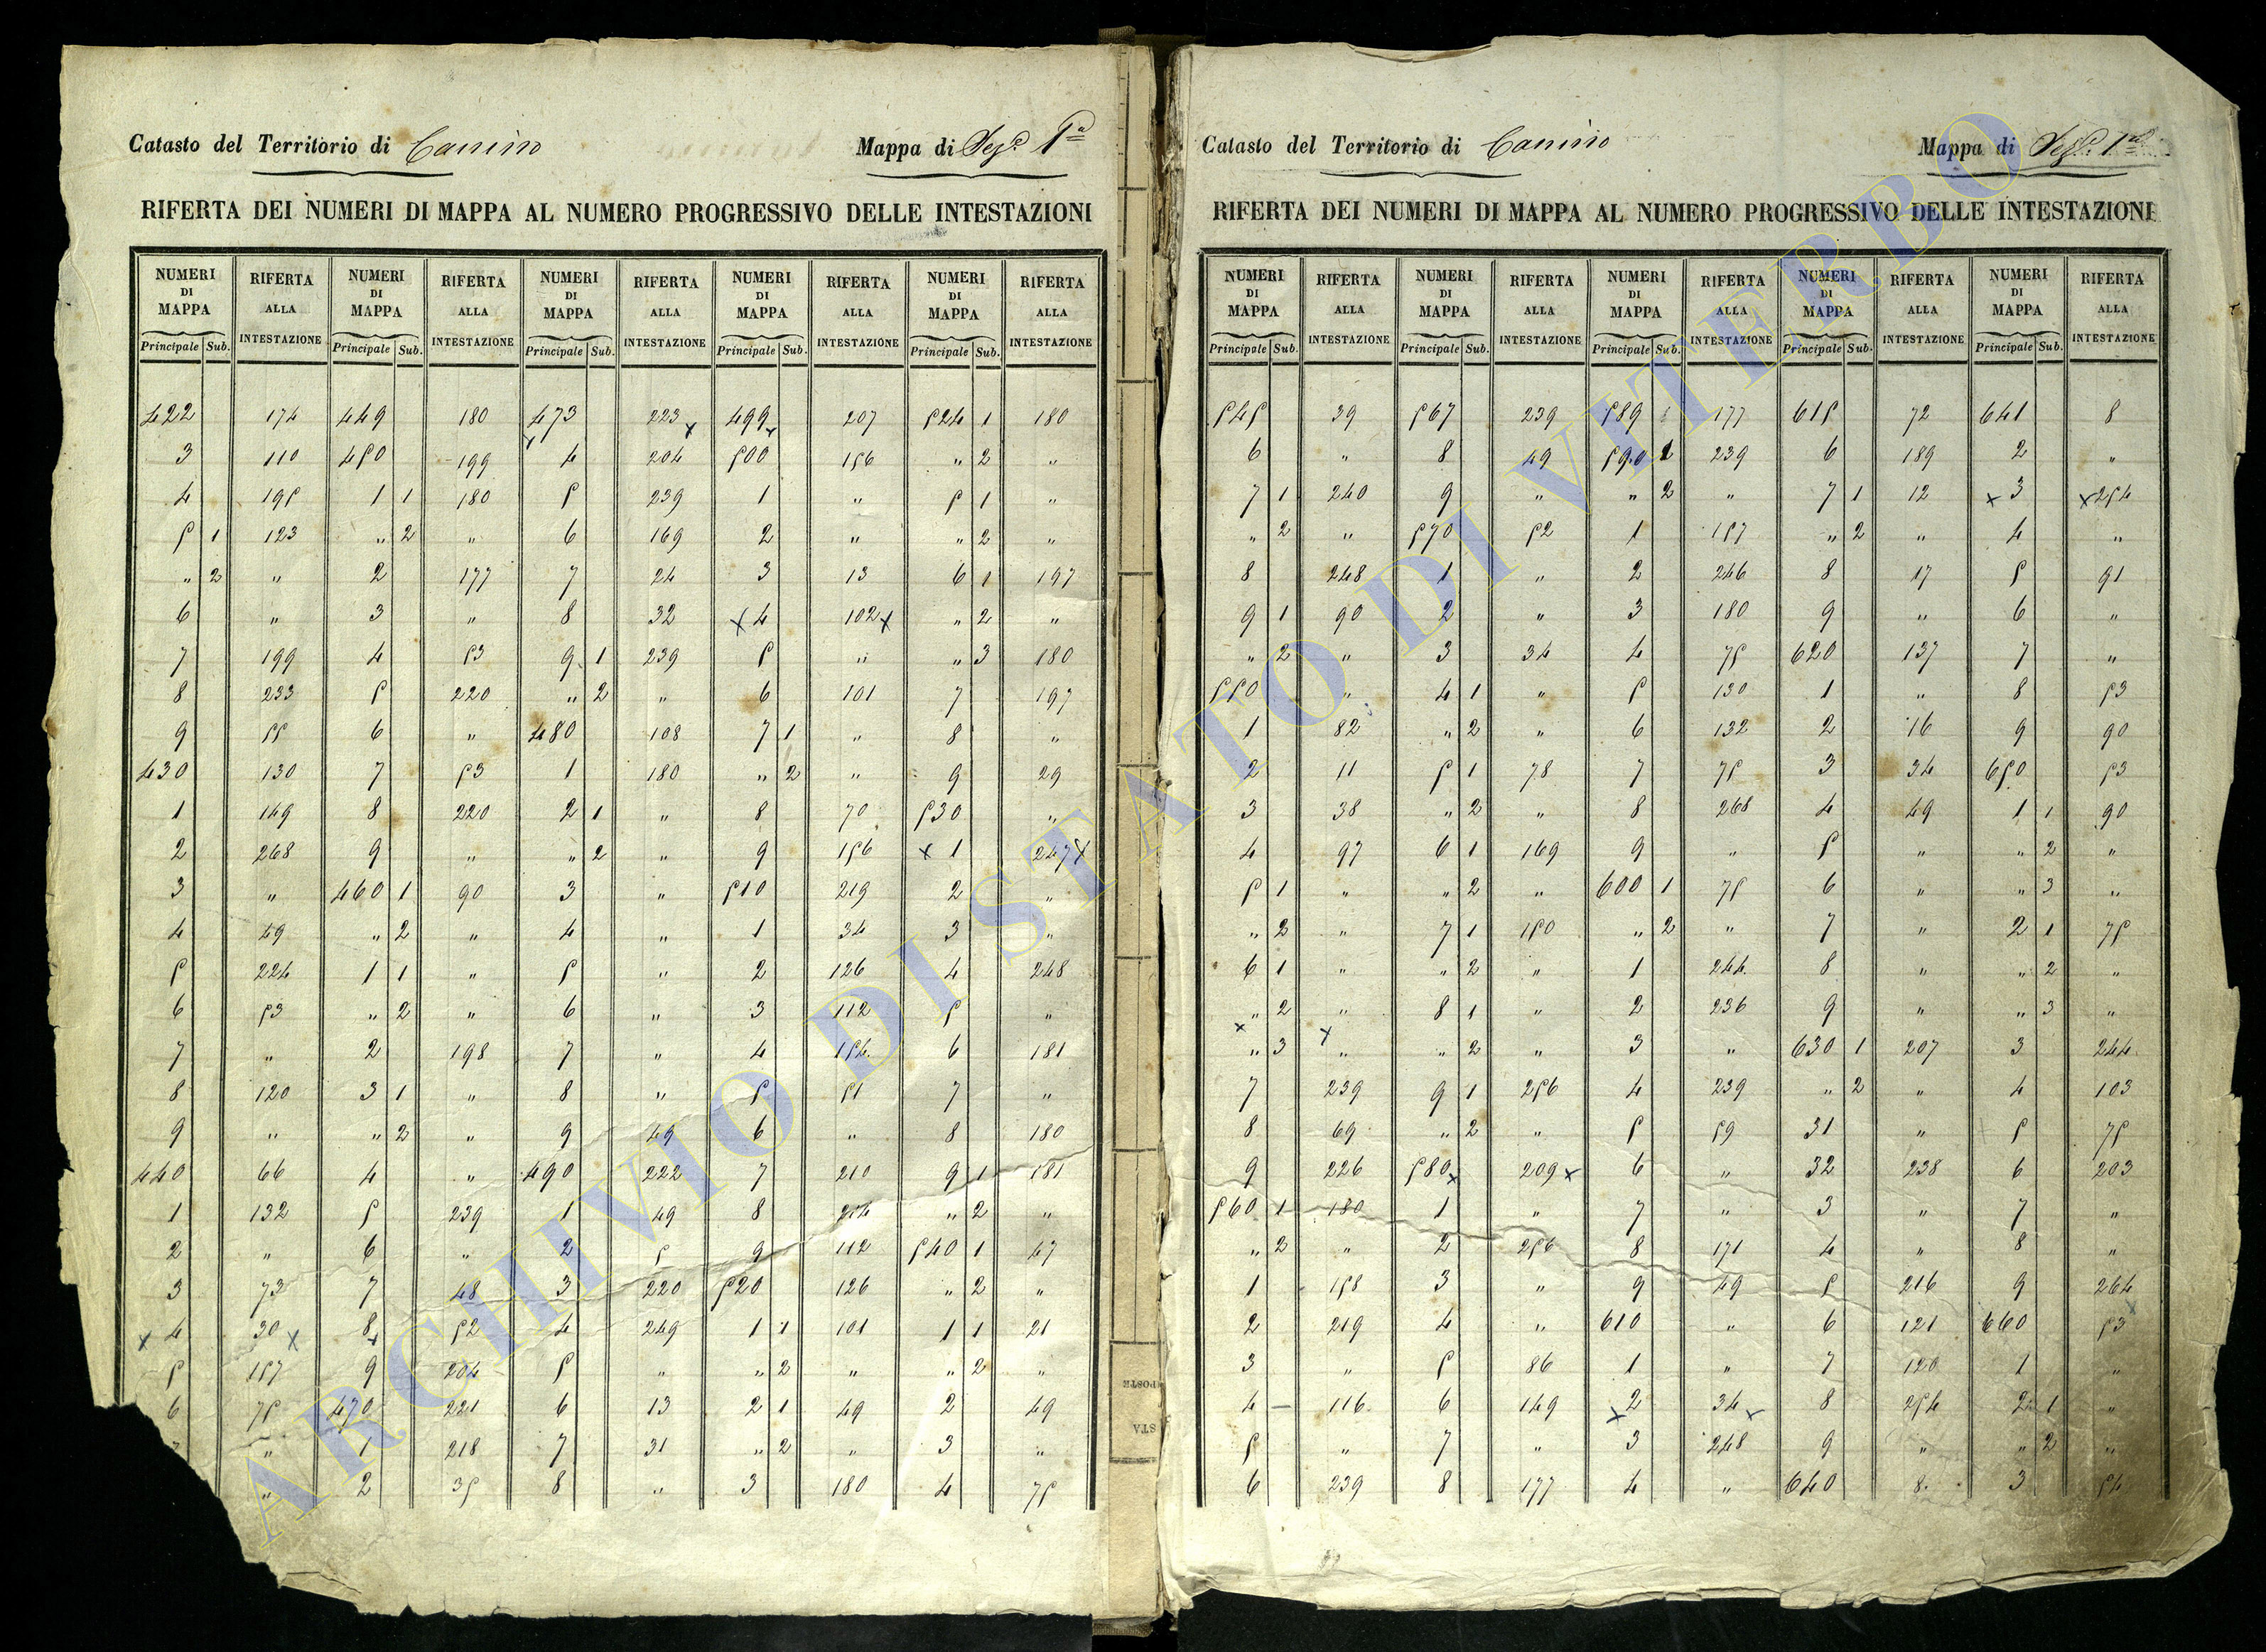 Catasto del Territorio di Canino Mappa di Sez.e 1a
RIFERTA DEI NUMERI DI MAPPA AL NUMERO PROGRESSIVO DELLE INTESTAZIONI
NUMERI DI MAPPA RIFERTA ALLA INTESTAZIONE NUMERI DI MAPPA RIFERTA ALLA INTESTAZIONE NUMERI DI MAPPA RIFERTA ALLA INTESTAZIONE NUMERI DI MAPPA RIFERTA ALLA INTESTAZIONE NUMERI DI MAPPA RIFERTA ALLA INTESTAZIONE
Principale Sub. Principale Sub. Principale Sub. Principale Sub. Principale Sub.
422 174 449 180 473 223 x 499 x 207 524 1 180
3 110 450 199 4 204 500 156 " 2 "
4 195 1 1 180 5 239 1 " 5 1 "
5 1 123 " 2 " 6 169 2 " " 2 "
" 2 " 2 177 7 24 3 13 6 1 197
6 " 3 " 8 32 x 4 102 x " 2 "
7 199 4 53 9 1 239 5 " " 3 180
8 233 5 220 " 2 " 6 101 7 197
9 55 6 " 480 108 7 1 " 8 "
430 130 7 53 1 180 " 2 " 9 29
1 149 8 220 2 1 " 8 70 530 "
2 268 9 " " 2 " 9 156 x 1 247 x
3 " 460 1 90 3 " 510 219 2 "
4 49 " 2 " 4 " 1 34 3 "
5 224 1 1 " 5 " 2 126 4 248
6 53 " 2 " 6 " 3 112 5 "
7 " 2 198 7 " 4 154 6 181
8 120 3 1 " 8 " 5 51 7 "
9 " " 2 " 9 49 6 " 8 180
440 66 4 " 490 222 7 210 9 1 181
1 132 5 239 1 49 8 214 " 2 "
2 " 6 " 2 5 9 112 540 1 47
3 73 7 48 3 220 520 126 " 2 "
x 4 30 x 8 x 52 4 249 1 1 101 1 1 21
5 157 9 204 5 " " 2 " " 2 "
6 75 470 221 6 13 2 1 49 2 49
7 " 1 218 7 31 " 2 " 3 "
" 2 35 8 " 3 180 4 75
POSTE
STA
Catasto del Territorio di Canino Mappa di Sez.e 1a
RIFERTA DEI NUMERI DI MAPPA AL NUMERO PROGRESSIVO DELLE INTESTAZIONI
NUMERI DI MAPPA RIFERTA ALLA INTESTAZIONE NUMERI DI MAPPA RIFERTA ALLA INTESTAZIONE NUMERI DI MAPPA RIFERTA ALLA INTESTAZIONE NUMERI DI MAPPA RIFERTA ALLA INTESTAZIONE NUMERI DI MAPPA RIFERTA ALLA INTESTAZIONE
Principale Sub. Principale Sub. Principale Sub. Principale Sub. Principale Sub.
545 39 567 239 589 177 615 72 641 8
6 " 8 49 590 1 239 6 189 2 "
7 1 240 9 " " 2 " 7 1 12 x 3 x 254
" 2 " 570 52 1 157 " 2 " 4 "
8 248 1 " 2 246 8 17 5 91
9 1 90 2 " 3 180 9 " 6 "
" 2 " 3 34 4 75 620 137 7 "
550 " 4 1 " 5 130 1 " 8 53
1 82 " 2 " 6 132 2 16 9 90
2 11 5 1 78 7 75 3 34 650 53
3 38 " 2 " 8 268 4 49 1 1 90
4 97 6 1 169 9 " 5 " " 2 "
5 1 " " 2 " 600 1 75 6 " " 3 "
" 2 " 7 1 150 " 2 " 7 " 2 1 75
6 1 " " 2 " 1 244 8 " " 2 "
" 2 " 8 1 " 2 236 9 " " 3 "
x " 3 x " " 2 " 3 " 630 1 207 3 244
7 239 9 1 256 4 239 " 2 " 4 103
8 69 " 2 " 5 59 31 " 5 75
9 226 580 x 209 x 6 " 32 238 6 203
560 1 180 1 " 7 " 3 " 7 "
" 2 " 2 256 8 171 4 " 8 "
1 158 3 " 9 49 5 216 9 264
2 219 4 " 610 " 6 121 660 53
3 " 5 86 1 " 7 120 1 "
4 — 116 6 149 x 2 34 x 8 254 2 1 "
5 " 7 " 3 248 9 " " 2 "
6 239 8 177 4 " 640 8 3 54
ARCHIVIO DI STATO DI VITERBO